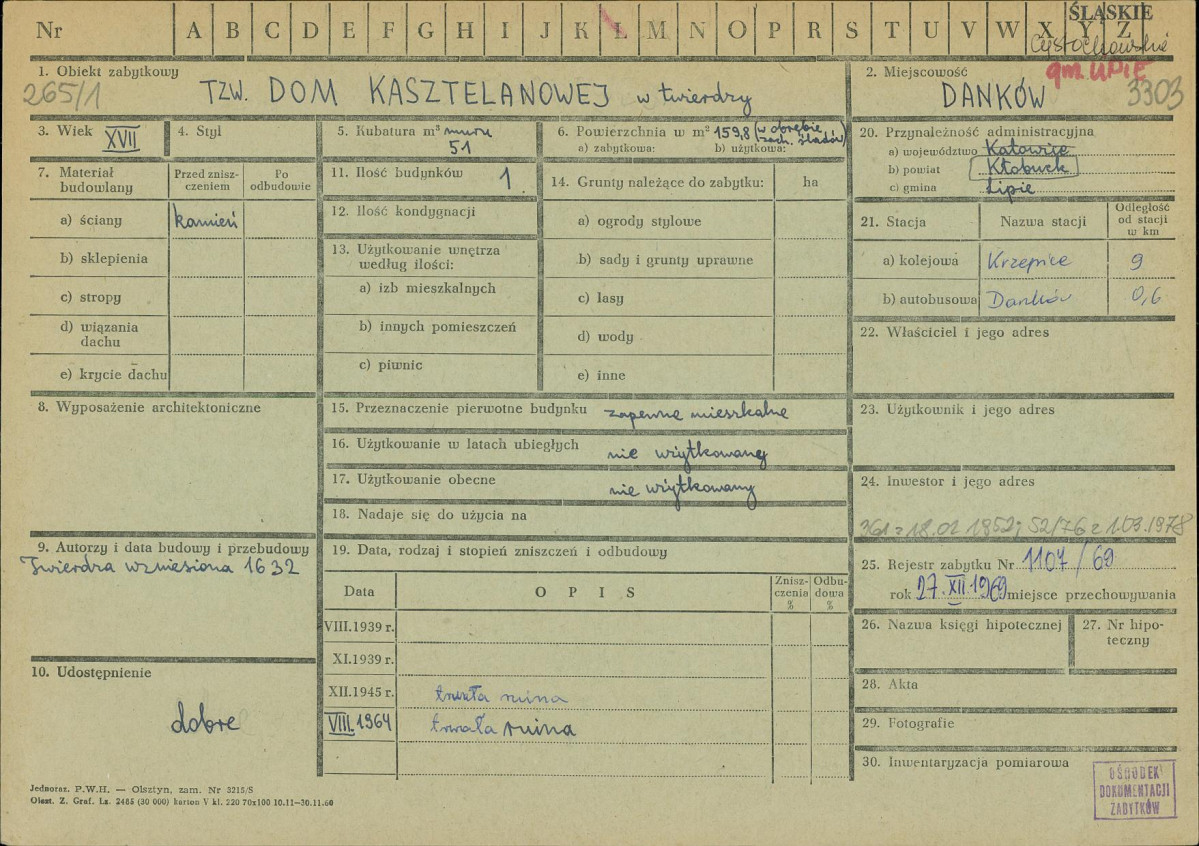 Nr A B C D E F G H I J K L M N O P R S T U V W X Y Z
ŚLĄSKIE
Częstochowskie
1. Obiekt zabytkowy
265/1
TZW. DOM KASZTELANOWEJ w twierdzy
2. Miejscowość
gm. LIPIE
DANKÓW 3303
3. Wiek XVII
4. Styl
5. Kubatura m³ muru
51
6. Powierzchnia w m² 159,8 (w obrębie
zach. śladów)
a) zabytkowa: b) użytkowa:
20. Przynależność administracyjna
a) województwo Katowice
b) powiat Kłobuck
c) gmina Lipie
7. Materiał
budowlany
Przed znisz-
czeniem
Po
odbudowie
a) ściany kamień
b) sklepienia
c) stropy
d) wiązania
dachu
e) krycie dachu
11. Ilość budynków 1
12. Ilość kondygnacji
13. Użytkowanie wnętrza
według ilości:
a) izb mieszkalnych
b) innych pomieszczeń
c) piwnic
14. Grunty należące do zabytku: ha
a) ogrody stylowe
b) sady i grunty uprawne
c) lasy
d) wody
e) inne
21. Stacja Nazwa stacji
Odległość
od stacji
w km
a) kolejowa Krzepice 9
b) autobusowa Danków 0,6
22. Właściciel i jego adres
8. Wyposażenie architektoniczne
15. Przeznaczenie pierwotne budynku zapewne mieszkalne
16. Użytkowanie w latach ubiegłych nie użytkowany
17. Użytkowanie obecne nie użytkowany
18. Nadaje się do użycia na
23. Użytkownik i jego adres
24. Inwestor i jego adres
361 z 18.02 1852; 52/76 z 1.03.1978
9. Autorzy i data budowy i przebudowy
Twierdza wzniesiona 1632
19. Data, rodzaj i stopień zniszczeń i odbudowy
Data
OPIS
Znisz-
czenia
%
Odbu-
dowa
%
VIII.1939 r.
XI.1939 r.
XII.1945 r. trwała ruina
VIII.1964 trwała ruina
25. Rejestr zabytku Nr 1107/69
rok 27.XII.1969 miejsce przechowywania
26. Nazwa księgi hipotecznej
27. Nr hipo-
teczny
28. Akta
29. Fotografie
30. Inwentaryzacja pomiarowa
10. Udostępnienie
dobre
Jednoraz. P.W.H. — Olsztyn, zam. Nr 3215/S
Olszt. Z. Graf. Lz. 2485 (30 000) karton V kl. 220 70x100 10.11—30.11.60
OŚRODEK
DOKUMENTACJI
ZABYTKÓW